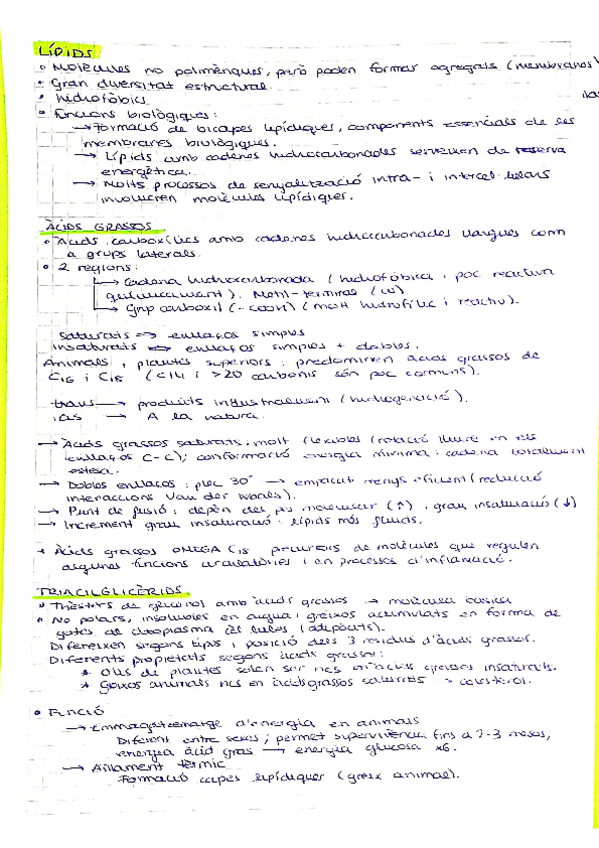 LÍPIDS
• Molècules no polimèriques, però poden formar agregats (membranes)
• Gran diversitat estructural.
• hidrofòbics
• Funcions biològiques:
→ Formació de bicapes lipídiques, components essencials de les
membranes biològiques.
→ Lípids amb cadenes hidrocarbonades serveixen de reserva
energètica.
→ Molts processos de senyalització intra- i intercel·lulars
involucren molècules lipídiques.
ÀCIDS GRASSOS.
• Àcids carboxílics amb cadenes hidrocarbonades llargues com
a grups laterals.
• 2 regions:
→ Cadena hidrocarbonada (hidrofòbica i poc reactiva
químicament). Metil-terminus (ω).
→ Grup carboxil (-COOH) (molt hidrofílic i reactiu).
saturats => enllaços simples
insaturats => enllaços simples + dobles.
Animals i plantes superiors: predominen àcids grassos de
C16 i C18 (C14 i >20 carbonis són poc comuns).
trans → productes industrialment (hidrogenació).
cis → A la natura.
→ Àcids grassos saturats: molt flexibles (rotació lliure en els
enllaços C-C); conformació energia mínima: cadena totalment
estesa.
→ Dobles enllaços: plec 30° → empacat menys eficient (reducció
interaccions Van der Waals).
→ Punt de fusió: depèn del pes molecular (↑), grau insaturació (↓)
→ Increment grau insaturació: lípids més fluids.
→ Àcids grassos OMEGA C18 precursors de molècules que regulen
algunes funcions circulatòries i en processos d'inflamació.
TRIACILGLICÈRIDS.
• Trièsters de glicerol amb àcids grassos → molècula bàsica
• No polars, insolubles en aigua: greixos acumulats en forma de
gotes al citoplasma cèl·lules (adipòcits).
Difereixen segons tipus i posició dels 3 residus d'àcids grassos.
Diferents propietats segons àcids grassos:
• Olis de plantes solen ser rics en àcids grassos insaturats.
• Greixos animals rics en àcids grassos saturats → colesterol.
• Funció
→ Emmagatzematge d'energia en animals
Diferent entre sexes; permet supervivència fins a 2-3 mesos,
energia àcid gras → energia glucosa x6.
→ Aïllament tèrmic
Formació capes lipídiques (greix animal).